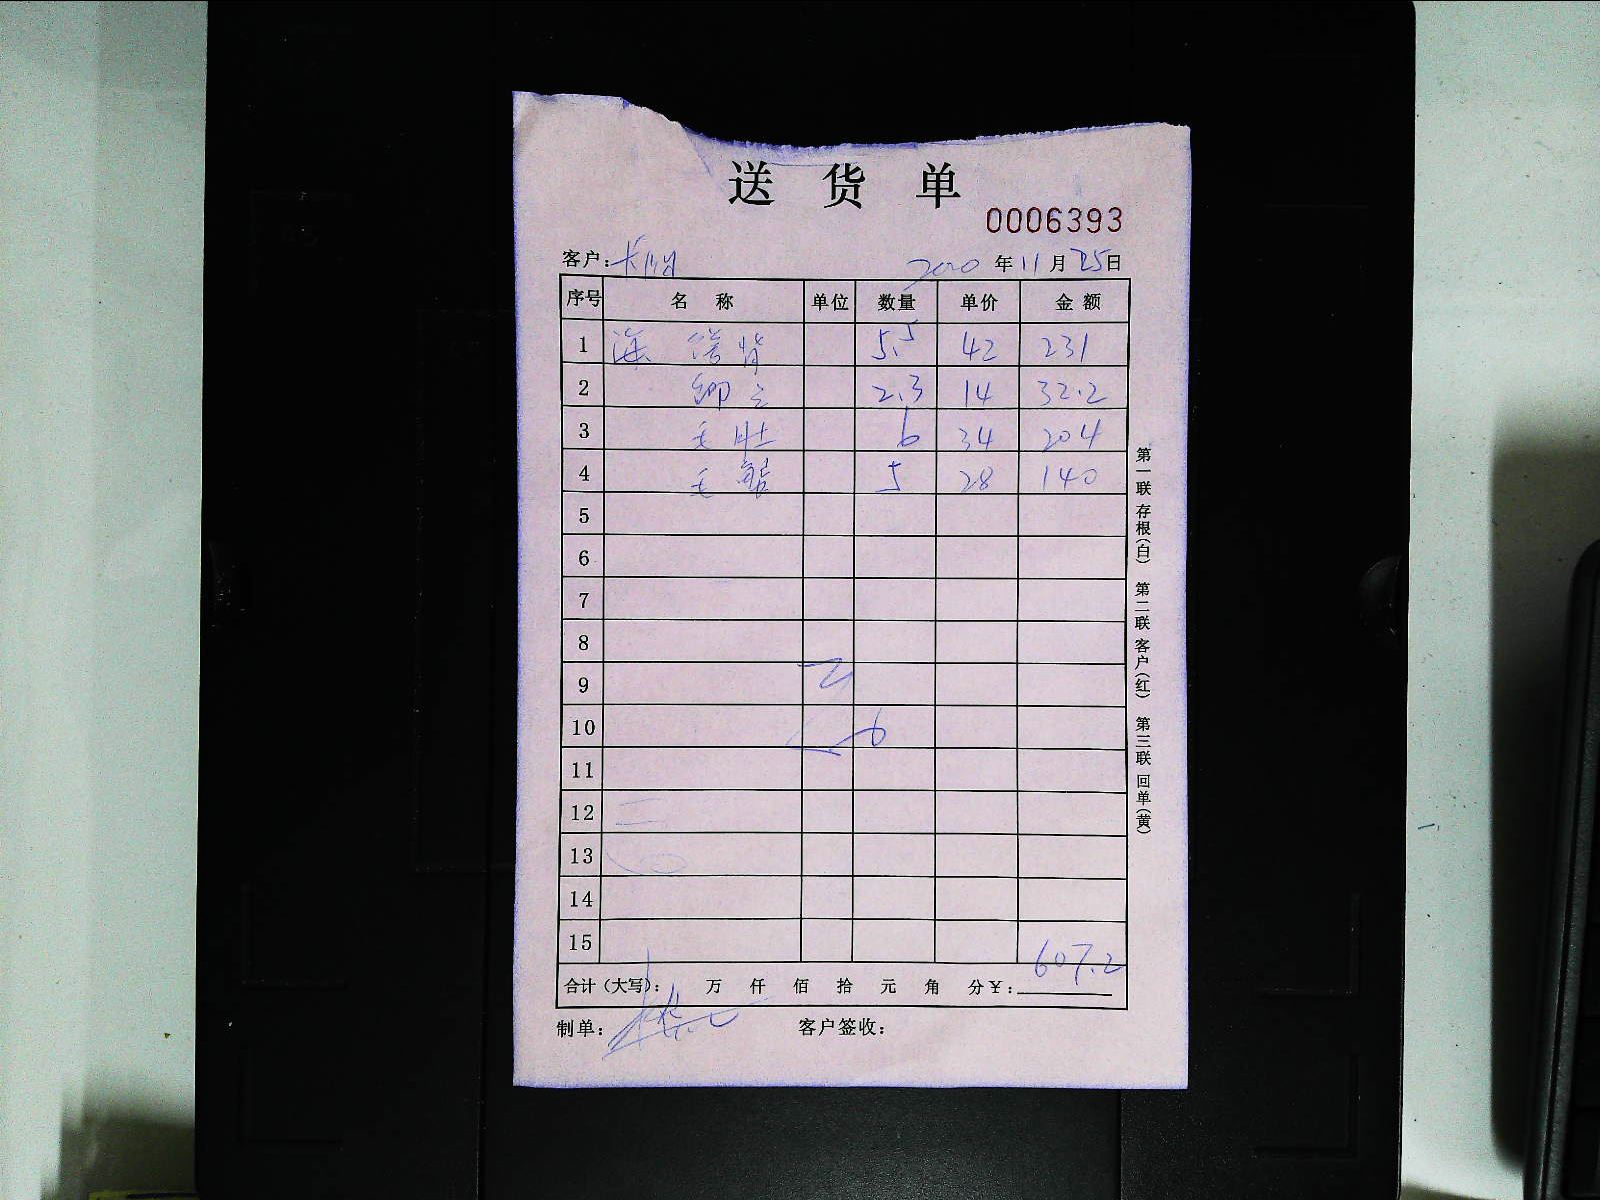 送 货 单
0006393
客户: 2020 年 11 月 25 日
序号 名 称 单位 数量 单价 金 额
1 5.5 42 231
2 2.3 14 32.2
3 毛肚 6 34 204
4 毛 5 28 140
5
6
7
8
9
10
11
12
13
14
15
607.2
合计(大写): 万 仟 佰 拾 元 角 分 ¥:
制单: 客户签收:
第一联 存根(白) 第二联 客户(红) 第三联 回单(黄)